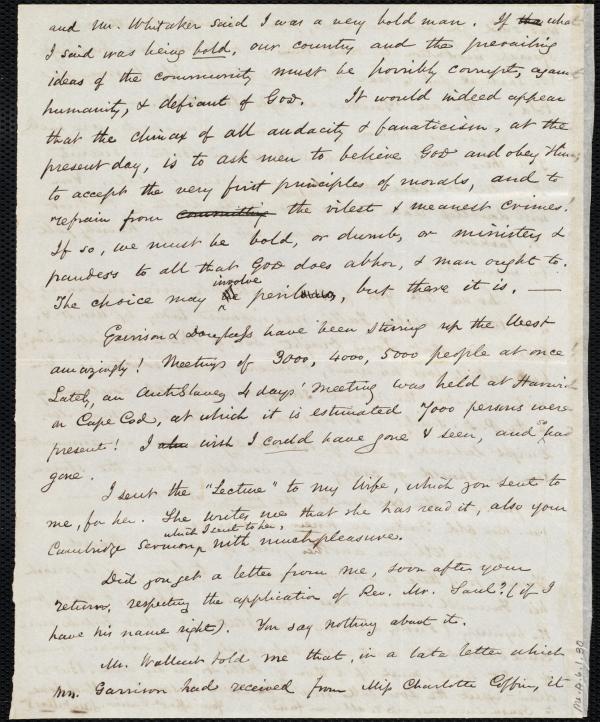 and Mr. Whitaker said I was a very bold man. If the what
I said was being bold, our country and the prevailing
ideas of the community must be horribly corrupt, against
humanity, & defiant of God. It would indeed appear
that the climax of all audacity & fanaticism, at the
present day, is to ask men to believe God and obey Him,
to accept the very first principles of morals, and to
refrain from committing the vilest & meanest crimes!
If so, we must be bold, or dumb, or ministers &
panders to all that God does abhor, & man ought to.
The choice may involve peril, but there it is. —
Garrison & Douglass have been stirring up the West
amazingly! Meetings of 3000, 4000, 5000 people at once!
Lately, an AntiSlavery 4 days' meeting was held at Harwich
on Cape Cod, at which it is estimated 7000 persons were
present! I also wish I could have gone & seen, and so had
gone.
I sent the "Lecture" to my Wife, which you sent to
me, for her. She writes me that she has read it, also your
Cambridge Sermon, which I sent to her, with much pleasure.
Did you get a letter from me, soon after your
return, respecting the application of Rev. Mr. Saul? (if I
have his name right). You say nothing about it.
Mr. Wallcut told me that, in a late letter which
Mrs. Garrison had received from Miss Charlotte Coffin, it
Ms.A.6.1.30